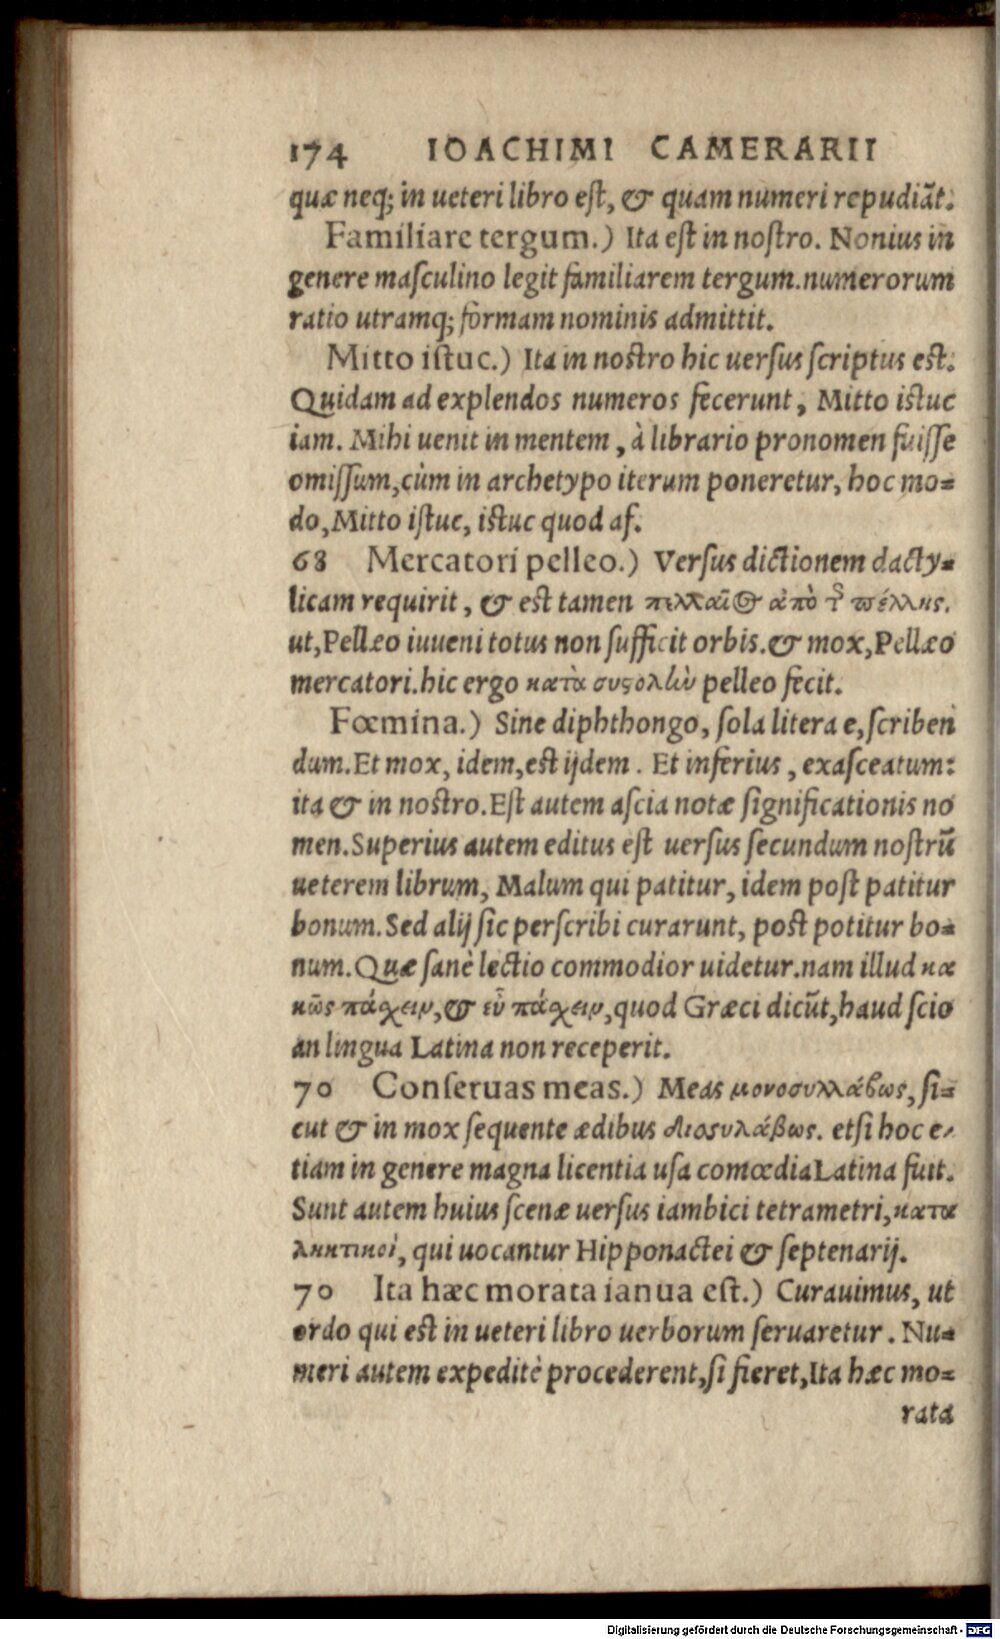 174 IOACHIMI CAMERARII
quæ neq; in ueteri libro est, & quam numeri repudiãt.
Familiare tergum.) Ita est in nostro. Nonius in
genere masculino legit familiarem tergum. numerorum
ratio utramq; formam nominis admittit.
Mitto istuc.) Ita in nostro hic uersus scriptus est.
Quidam ad explendos numeros fecerunt, Mitto istuc
iam. Mihi uenit in mentem, à librario pronomen fuisse
omissum, cùm in archetypo iterum poneretur, hoc mo=
do, Mitto istuc, istuc quod af.
68 Mercatori pelleo.) Versus dictionem dacty=
licam requirit, & est tamen πελλαῖος ἀπὸ τῆς πέλλης.
ut, Pellæo iuueni totus non sufficit orbis. & mox, Pellæo
mercatori. hic ergo κατὰ συςολὴν pelleo fecit.
Fœmina.) Sine diphthongo, sola litera e, scriben
dum. Et mox, idem, est ijdem. Et inferius, exasceatum:
ita & in nostro. Est autem ascia notæ significationis no
men. Superius autem editus est uersus secundum nostrũ
ueterem librum, Malum qui patitur, idem post patitur
bonum. Sed alij sic perscribi curarunt, post potitur bo=
num. Quæ sanè lectio commodior uidetur. nam illud κα
κῶς πάχειν, & εὖ πάχειν, quod Græci dicũt, haud scio
an lingua Latina non receperit.
70 Conseruas meas.) Meas μονοσυλλάβως, si=
cut & in mox sequente ædibus διοσυλάβως. etsi hoc e=
tiam in genere magna licentia usa comœdia Latina fuit.
Sunt autem huius scenæ uersus iambici tetrametri, κατα
ληκτικοὶ, qui uocantur Hipponactei & septenarij.
70 Ita hæc morata ianua est.) Curauimus, ut
ordo qui est in ueteri libro uerborum seruaretur. Nu=
meri autem expeditè procederent, si fieret, Ita hæc mo=
rata
Digitalisierung gefördert durch die Deutsche Forschungsgemeinschaft - DFG